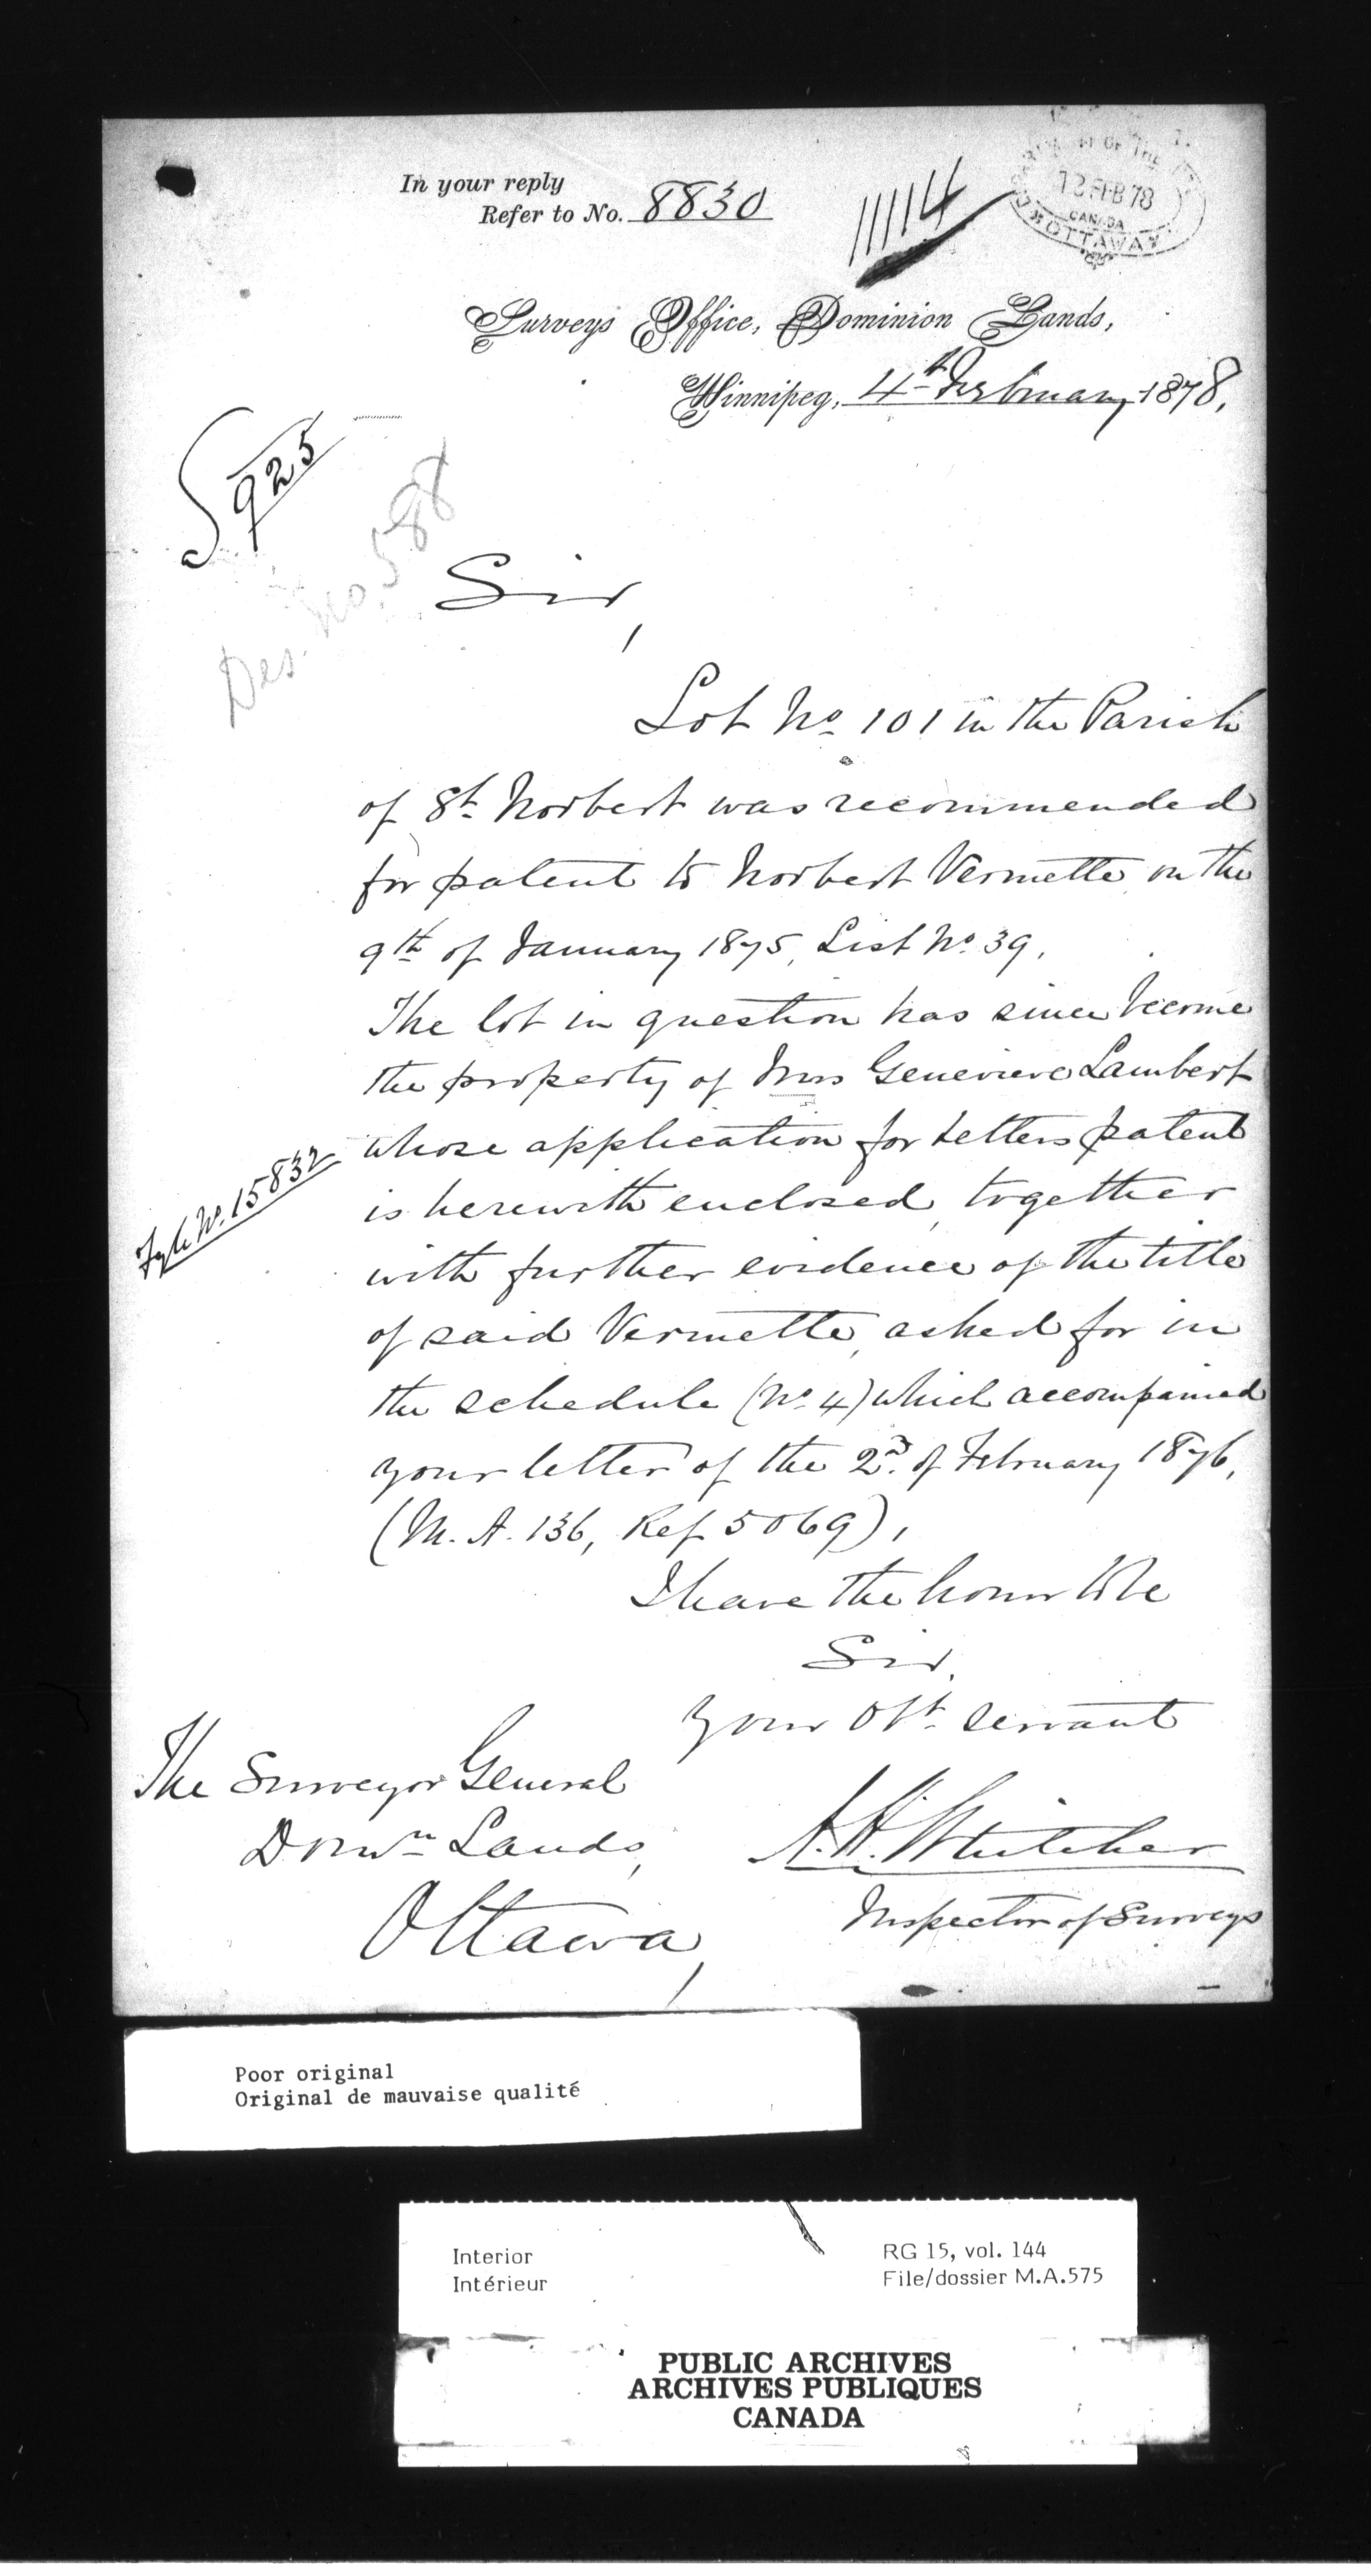 In your reply
Refer to No. 8830
11114
DEPARTMENT OF THE INTERIOR
12 FEB 78
CANADA
OTTAWA
Surveys Office, Dominion Lands,
Winnipeg, 4th February 1878,
925
Des. No. 588
Sir,
Lot No 101 in the Parish
of St. Norbert was recommended
for patent to Norbert Vermette on the
9th of January 1875, List No. 39.
The lot in question has since become
the property of Mrs Genevieve Lambert
whose application for Letters patent
Fyle No. 15832
is herewith enclosed, together
with further evidence of the title
of said Vermette, asked for in
the schedule (No. 4) which accompanied
your letter of the 2nd. of February 1876,
(M. A. 136, Ref 5069),
I have the honor to be
Sir,
Your Obt. servant
The Surveyor General
Domn Lands,
Ottawa,
A. H. Whitcher
Inspector of Surveys
Poor original
Original de mauvaise qualité
Interior
Intérieur
RG 15, vol. 144
File/dossier M.A.575
PUBLIC ARCHIVES
ARCHIVES PUBLIQUES
CANADA